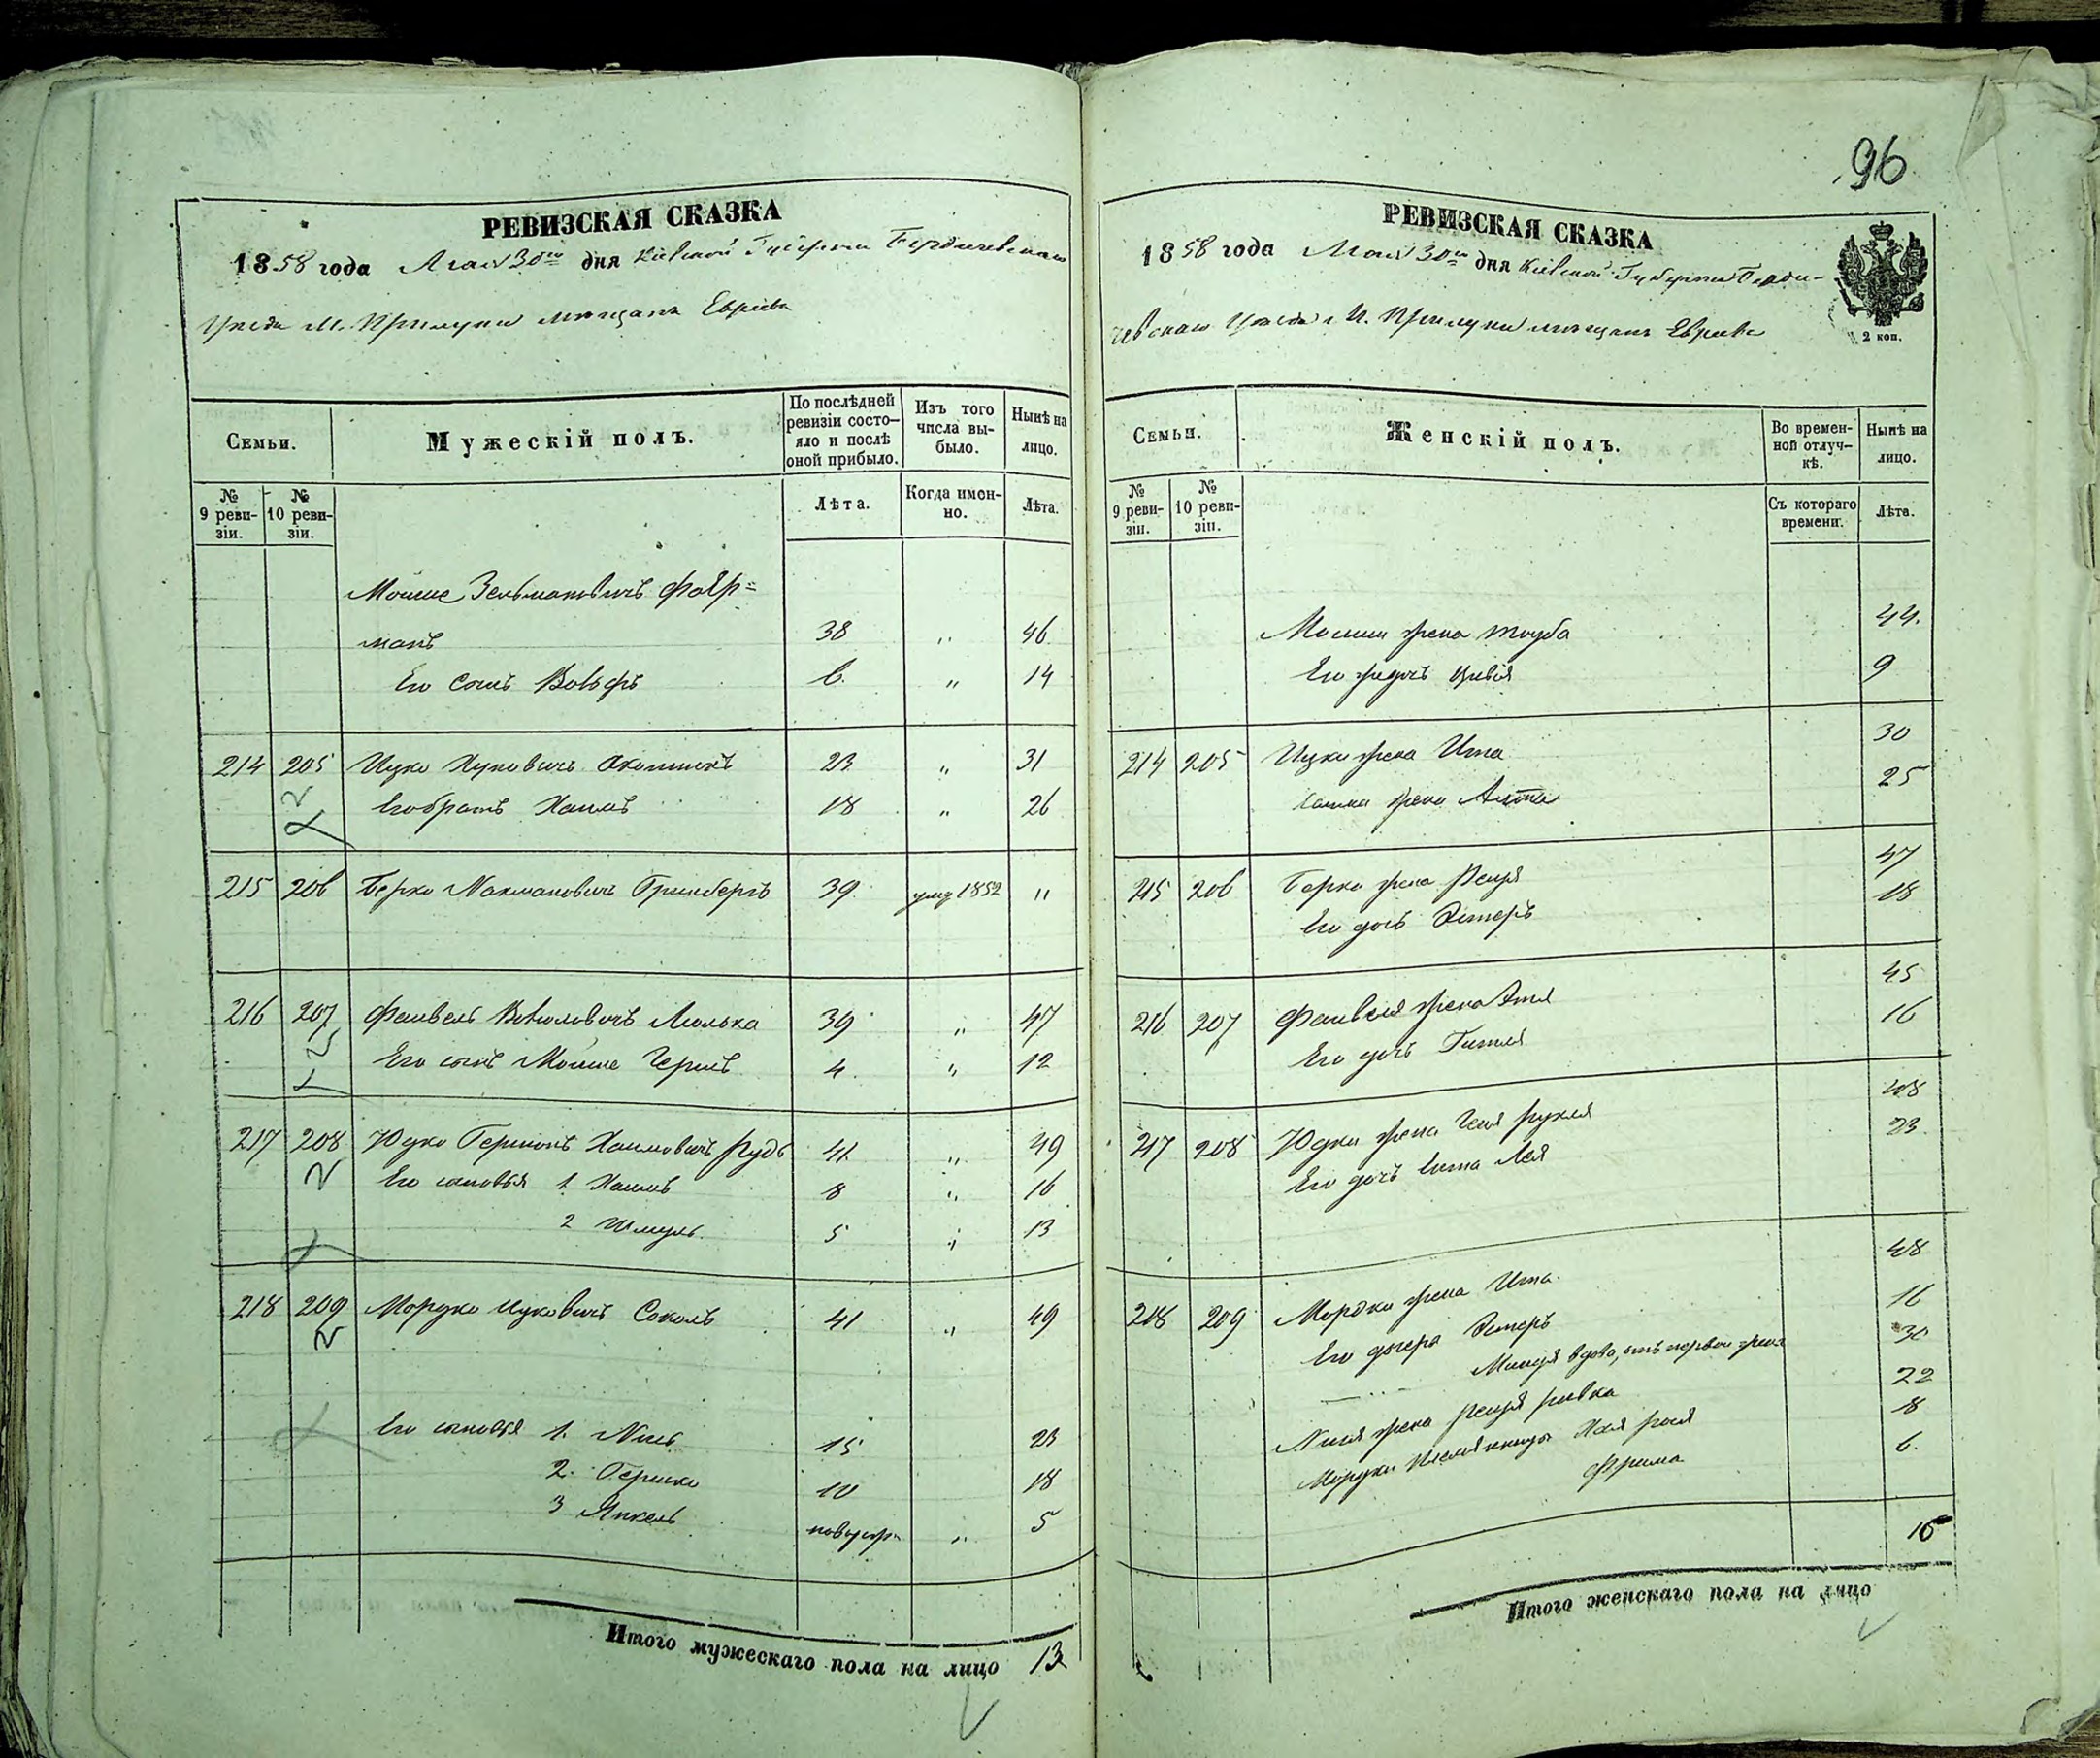 96
РЕВИЗСКАЯ СКАЗКА
1858 года Мая 30го дня Кіевской Губерніи Бердичевскаго
Уѣзда М. Прилуки мѣщанъ Евреевъ
Семьи.
Мужескій полъ.
По послѣдней ревизіи состо-
яло и послѣ
оной прибыло.
Изъ того
числа вы-
было.
Нынѣ на
лицо.
№
9 реви-
зіи.
№
10 реви-
зіи.
Лѣта.
Когда имен-
но.
Лѣта.
Мошко Зельмановичъ Фаер=
манъ 38 " 46
Его сынъ Вольфъ 6 " 14
214 205 Ицко Ицковичъ 23 " 31
Его братъ Хаимъ 18 " 26
215 206 Берко Нахмановичъ Гринбергъ 39 умер 1852 "
216 207 Файвель Волковичъ Люлька 39 " 47
Его сынъ Мошко Гершъ 4 " 12
217 208 Юдко Гершонъ Хаимовичъ Рудь 41 " 49
Его сыновья 1 Хаимъ 8 " 16
2 Шмуль 5 " 13
218 209 Мордко Ицковичъ Соколъ 41 " 49
Его сыновья 1. Нисъ 15 23
2. Гершко 10 18
3 Янкель новорож. " 5
Итого мужескаго пола на лицо 13
РЕВИЗСКАЯ СКАЗКА
1858 года Мая 30го дня Кіевской Губерніи Берди-
чевскаго Уѣзда М. Прилуки мѣщанъ Евреевъ
2 коп.
Семьи.
Женскій полъ.
Во времен-
ной отлуч-
кѣ.
Нынѣ на
лицо.
№
9 реви-
зіи.
№
10 реви-
зіи.
Съ котораго
времени.
Лѣта.
Мошки жена Тауба 44.
Его дочь Цивія 9
214 205 Ицки жена Ита 30
Хаима жена 25
215 206 Берки жена Рейзя 47
Его дочь Эстеръ 18
216 207 Файвеля жена Этля 45
Его дочь Гитля 16
217 208 Юдки жена Рухля 48
Его дочь Лея 23
218 209 Мордки жена Ита 48
Его дочери Эстеръ 16
вдова, отъ первой жены 30
Нися жена Рейзя Ривка 22
Мордки племянницы Хая Рося 18
Фрима 6.
Итого женскаго пола на лицо 15